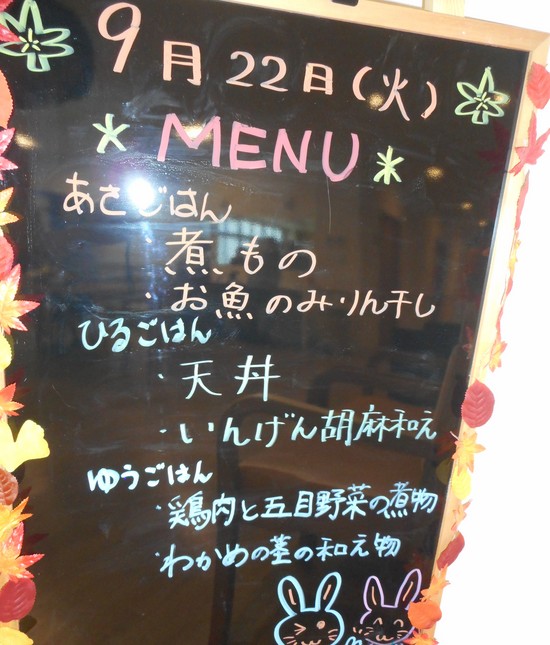 9月22日(火)
MENU
あさごはん
煮もの
・お魚のみりん干し
ひるごはん
・天丼
・いんげん胡麻和え
ゆうごはん
・鶏肉と五目野菜の煮物
・わかめの茎の和え物